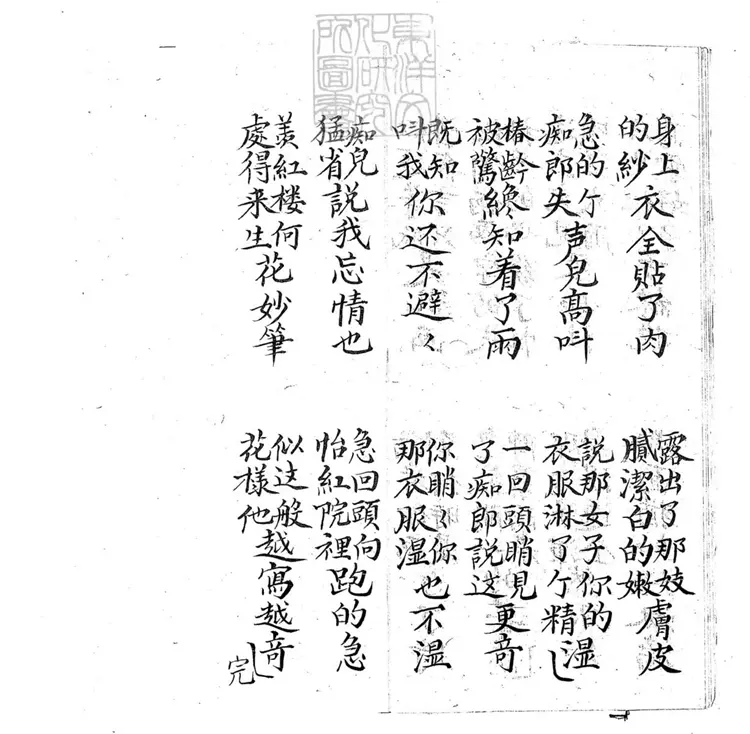 身上的紗衣全貼了肉
露出了那妓膩潔白的嫩膚皮
急的个痴郎失声兒高叫
說那女子你的衣服淋了个精湿
椿齡被驚纔知着了雨
一回頭睄見了痴郎說这更奇
既知叫我你还不避々
你睄々你那衣服湿也不湿
痴兒猛省說我忘情也
急回頭向怡紅院裡跑的急
羡紅楼何處得来生花妙筆
似这般花樣他越寫越奇
完
東洋文
化研究
所圖書